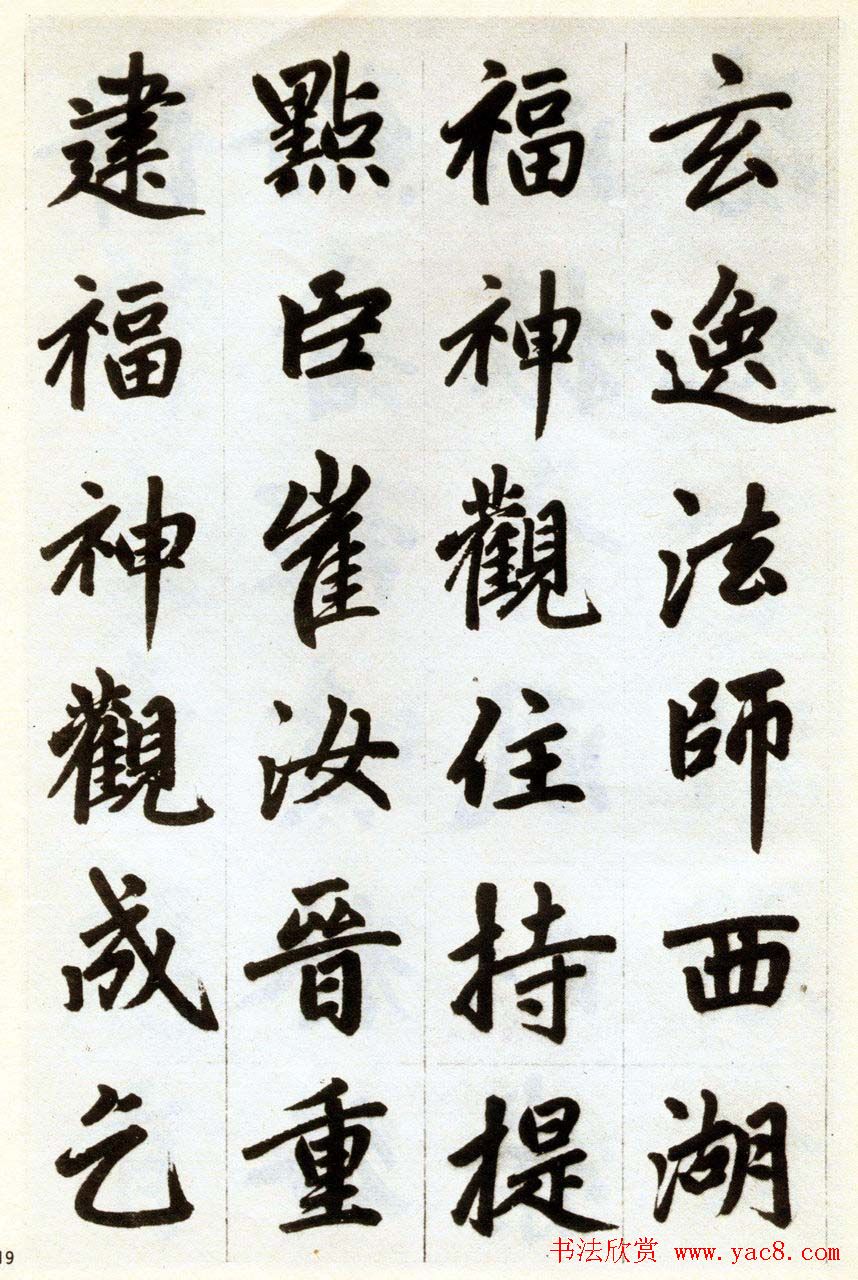 玄逸法師西湖
福神觀住持提
點臣崔汝晉重
建福神觀成乞
19
书法欣赏 www.yac8.com